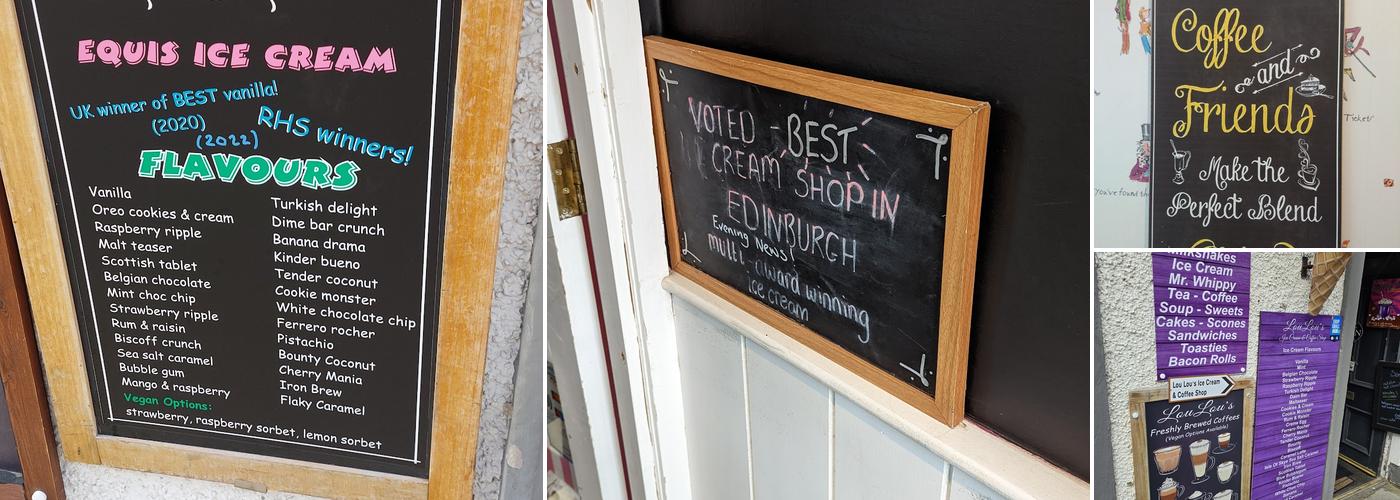 EQUIS ICE CREAM
UK winner of BEST vanilla!
(2020)
(2022)
RHS winners!
FLAVOURS
Vanilla
Oreo cookies & cream
Raspberry ripple
Malt teaser
Scottish tablet
Belgian chocolate
Mint choc chip
Strawberry ripple
Rum & raisin
Biscoff crunch
Sea salt caramel
Bubble gum
Mango & raspberry
Turkish delight
Dime bar crunch
Banana drama
Kinder bueno
Tender coconut
Cookie monster
White chocolate chip
Ferrero rocher
Pistachio
Bounty Coconut
Cherry Mania
Iron Brew
Flaky Caramel
Vegan Options:
strawberry, raspberry sorbet, lemon sorbet
VOTED - BEST
CREAM SHOP IN
EDINBURGH
Evening News!
multi-award winning
ice cream
Coffee
and
Friends
Make the
Perfect Blend
Tickets
You've found the
Milkshakes
Ice Cream
Mr. Whippy
Tea - Coffee
Soup - Sweets
Cakes - Scones
Sandwiches
Toasties
Bacon Rolls
Lou Lou's Ice Cream
& Coffee Shop
LouLou's
Freshly Brewed Coffees
(Vegan Options Available)
LouLou's
Ice Cream & Coffee Shop
Ice Cream Flavours
Vanilla
Mint
Belgian Chocolate
Strawberry Ripple
Raspberry Ripple
Turkish Delight
Daim Bar
Malteaser
Cookies & Cream
Cookie Monster
Rum & Raisin
Creme Egg
Ferrero Rocher
Cherry Mania
Tender Coconut